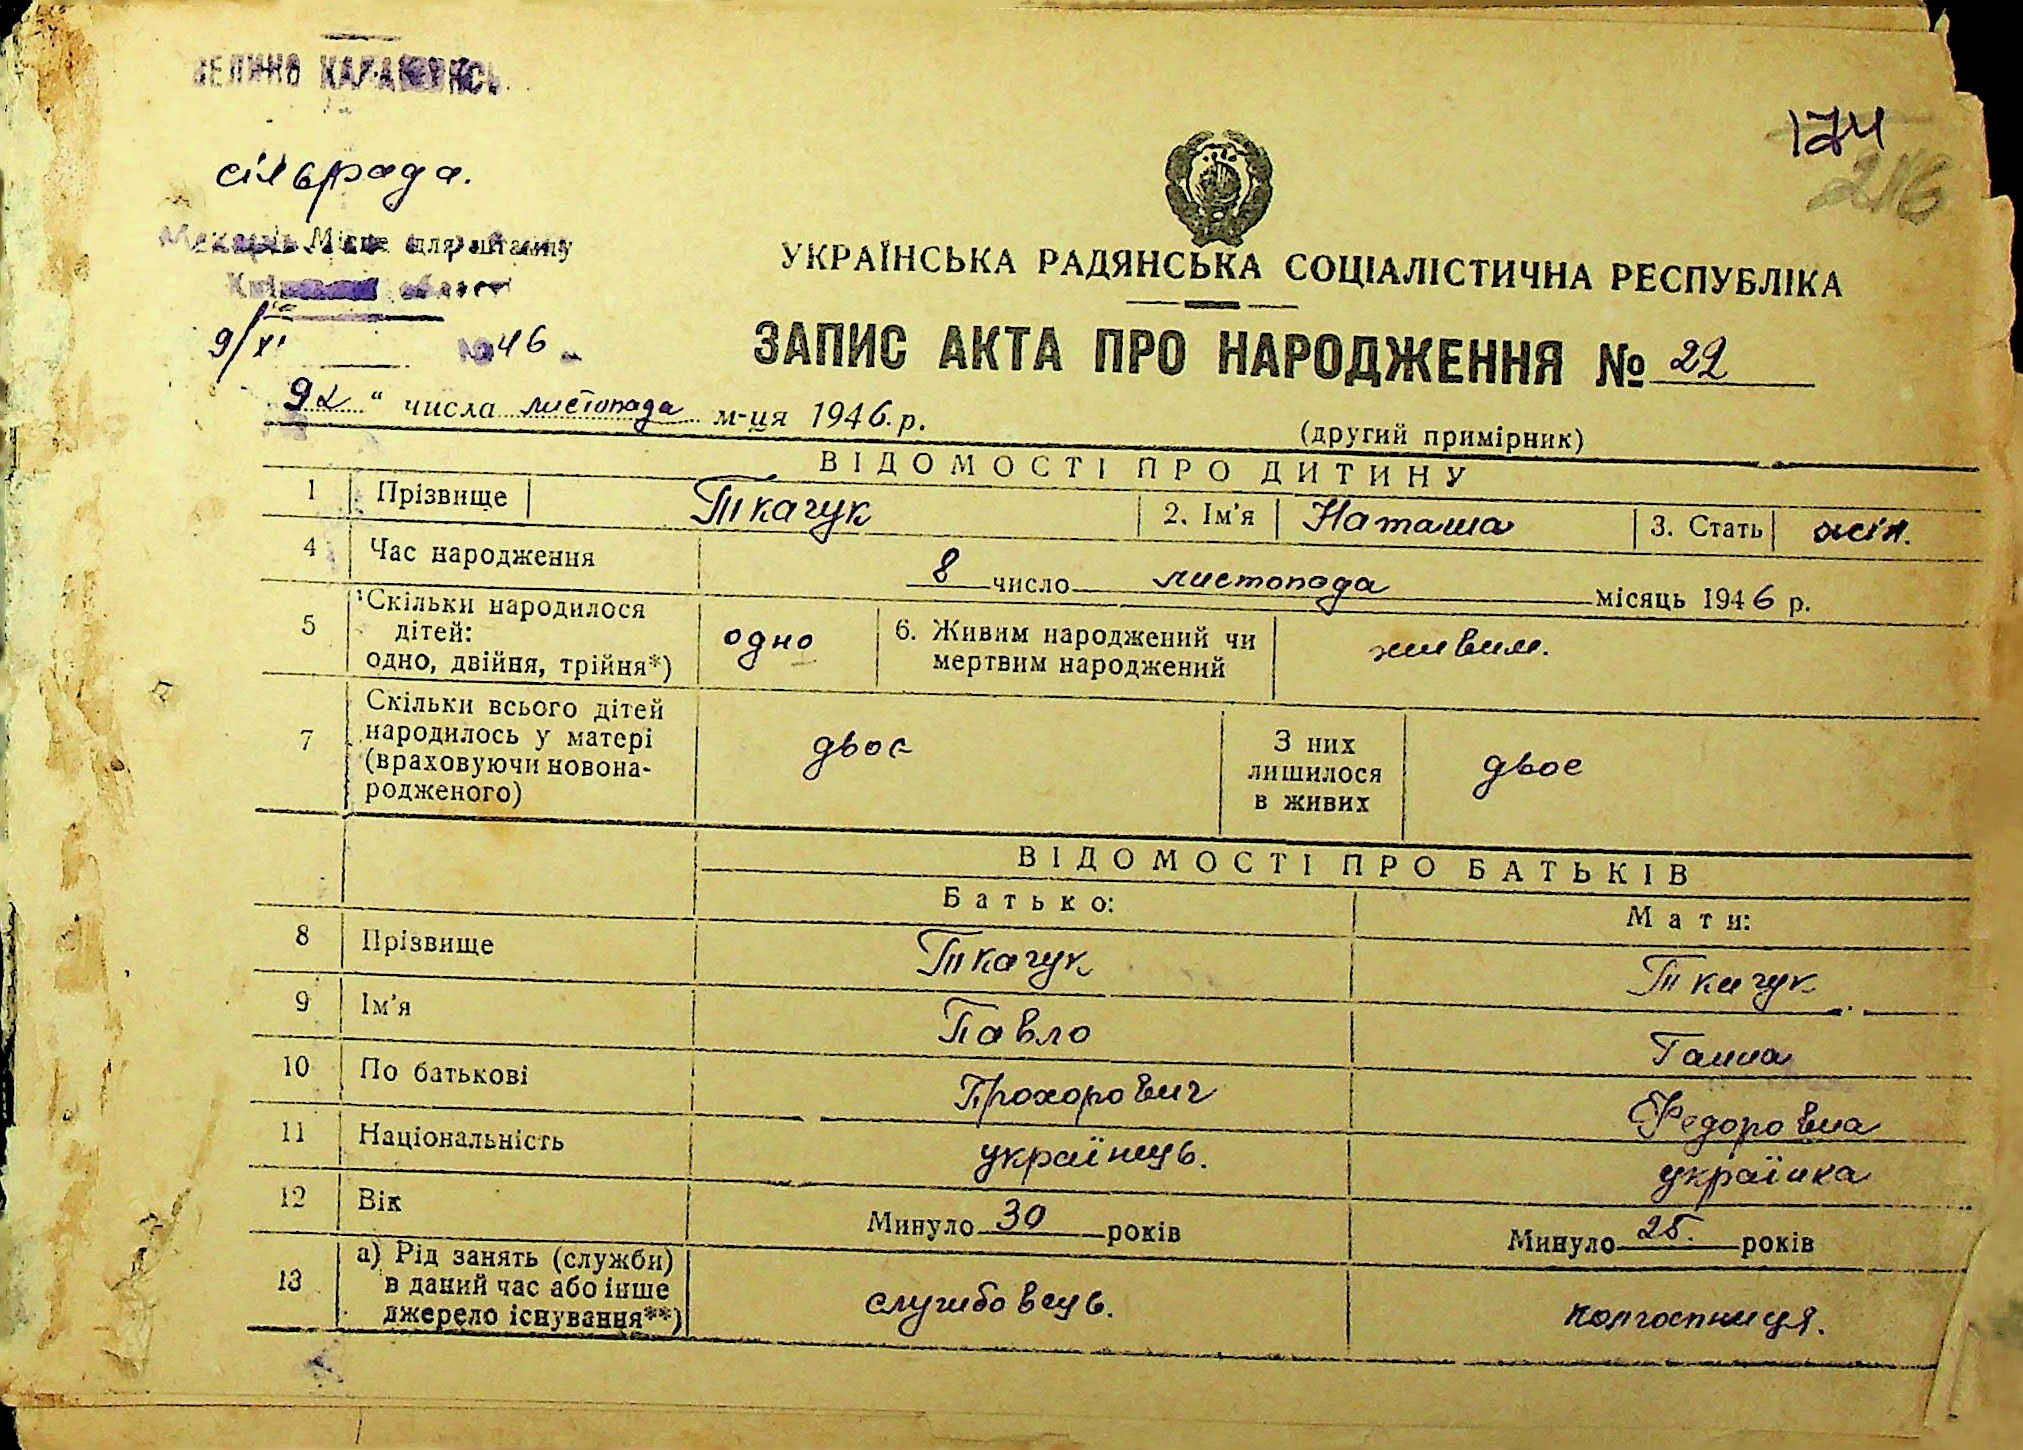 ВЕЛИКО КАРАШИНСЬ
174
216
сільрада.
Місце для штампу
області
9/XI №46
УКРАЇНСЬКА РАДЯНСЬКА СОЦІАЛІСТИЧНА РЕСПУБЛІКА
ЗАПИС АКТА ПРО НАРОДЖЕННЯ № 22
" числа листопада м-ця 1946.р.
(другий примірник)
ВІДОМОСТІ ПРО ДИТИНУ
1 Прізвище Ткачук 2. Ім'я Наташа 3. Стать жін.
4 Час народження 8 число листопада місяць 1946 р.
5 Скільки народилося
дітей:
одно, двійня, трійня*) одно 6. Живим народжений чи
мертвим народжений живим.
7 Скільки всього дітей
народилось у матері
(враховуючи новона-
родженого) двоє З них
лишилося
в живих двоє
ВІДОМОСТІ ПРО БАТЬКІВ
Батько: Мати:
8 Прізвище Ткачук Ткачук
9 Ім'я Павло Ганна
10 По батькові Прохорович Федоровна
11 Національність українець. українка
12 Вік Минуло 30 років Минуло 25. років
13 а) Рід занять (служби)
в даний час або інше
джерело існування**) службовець. колгоспниця.